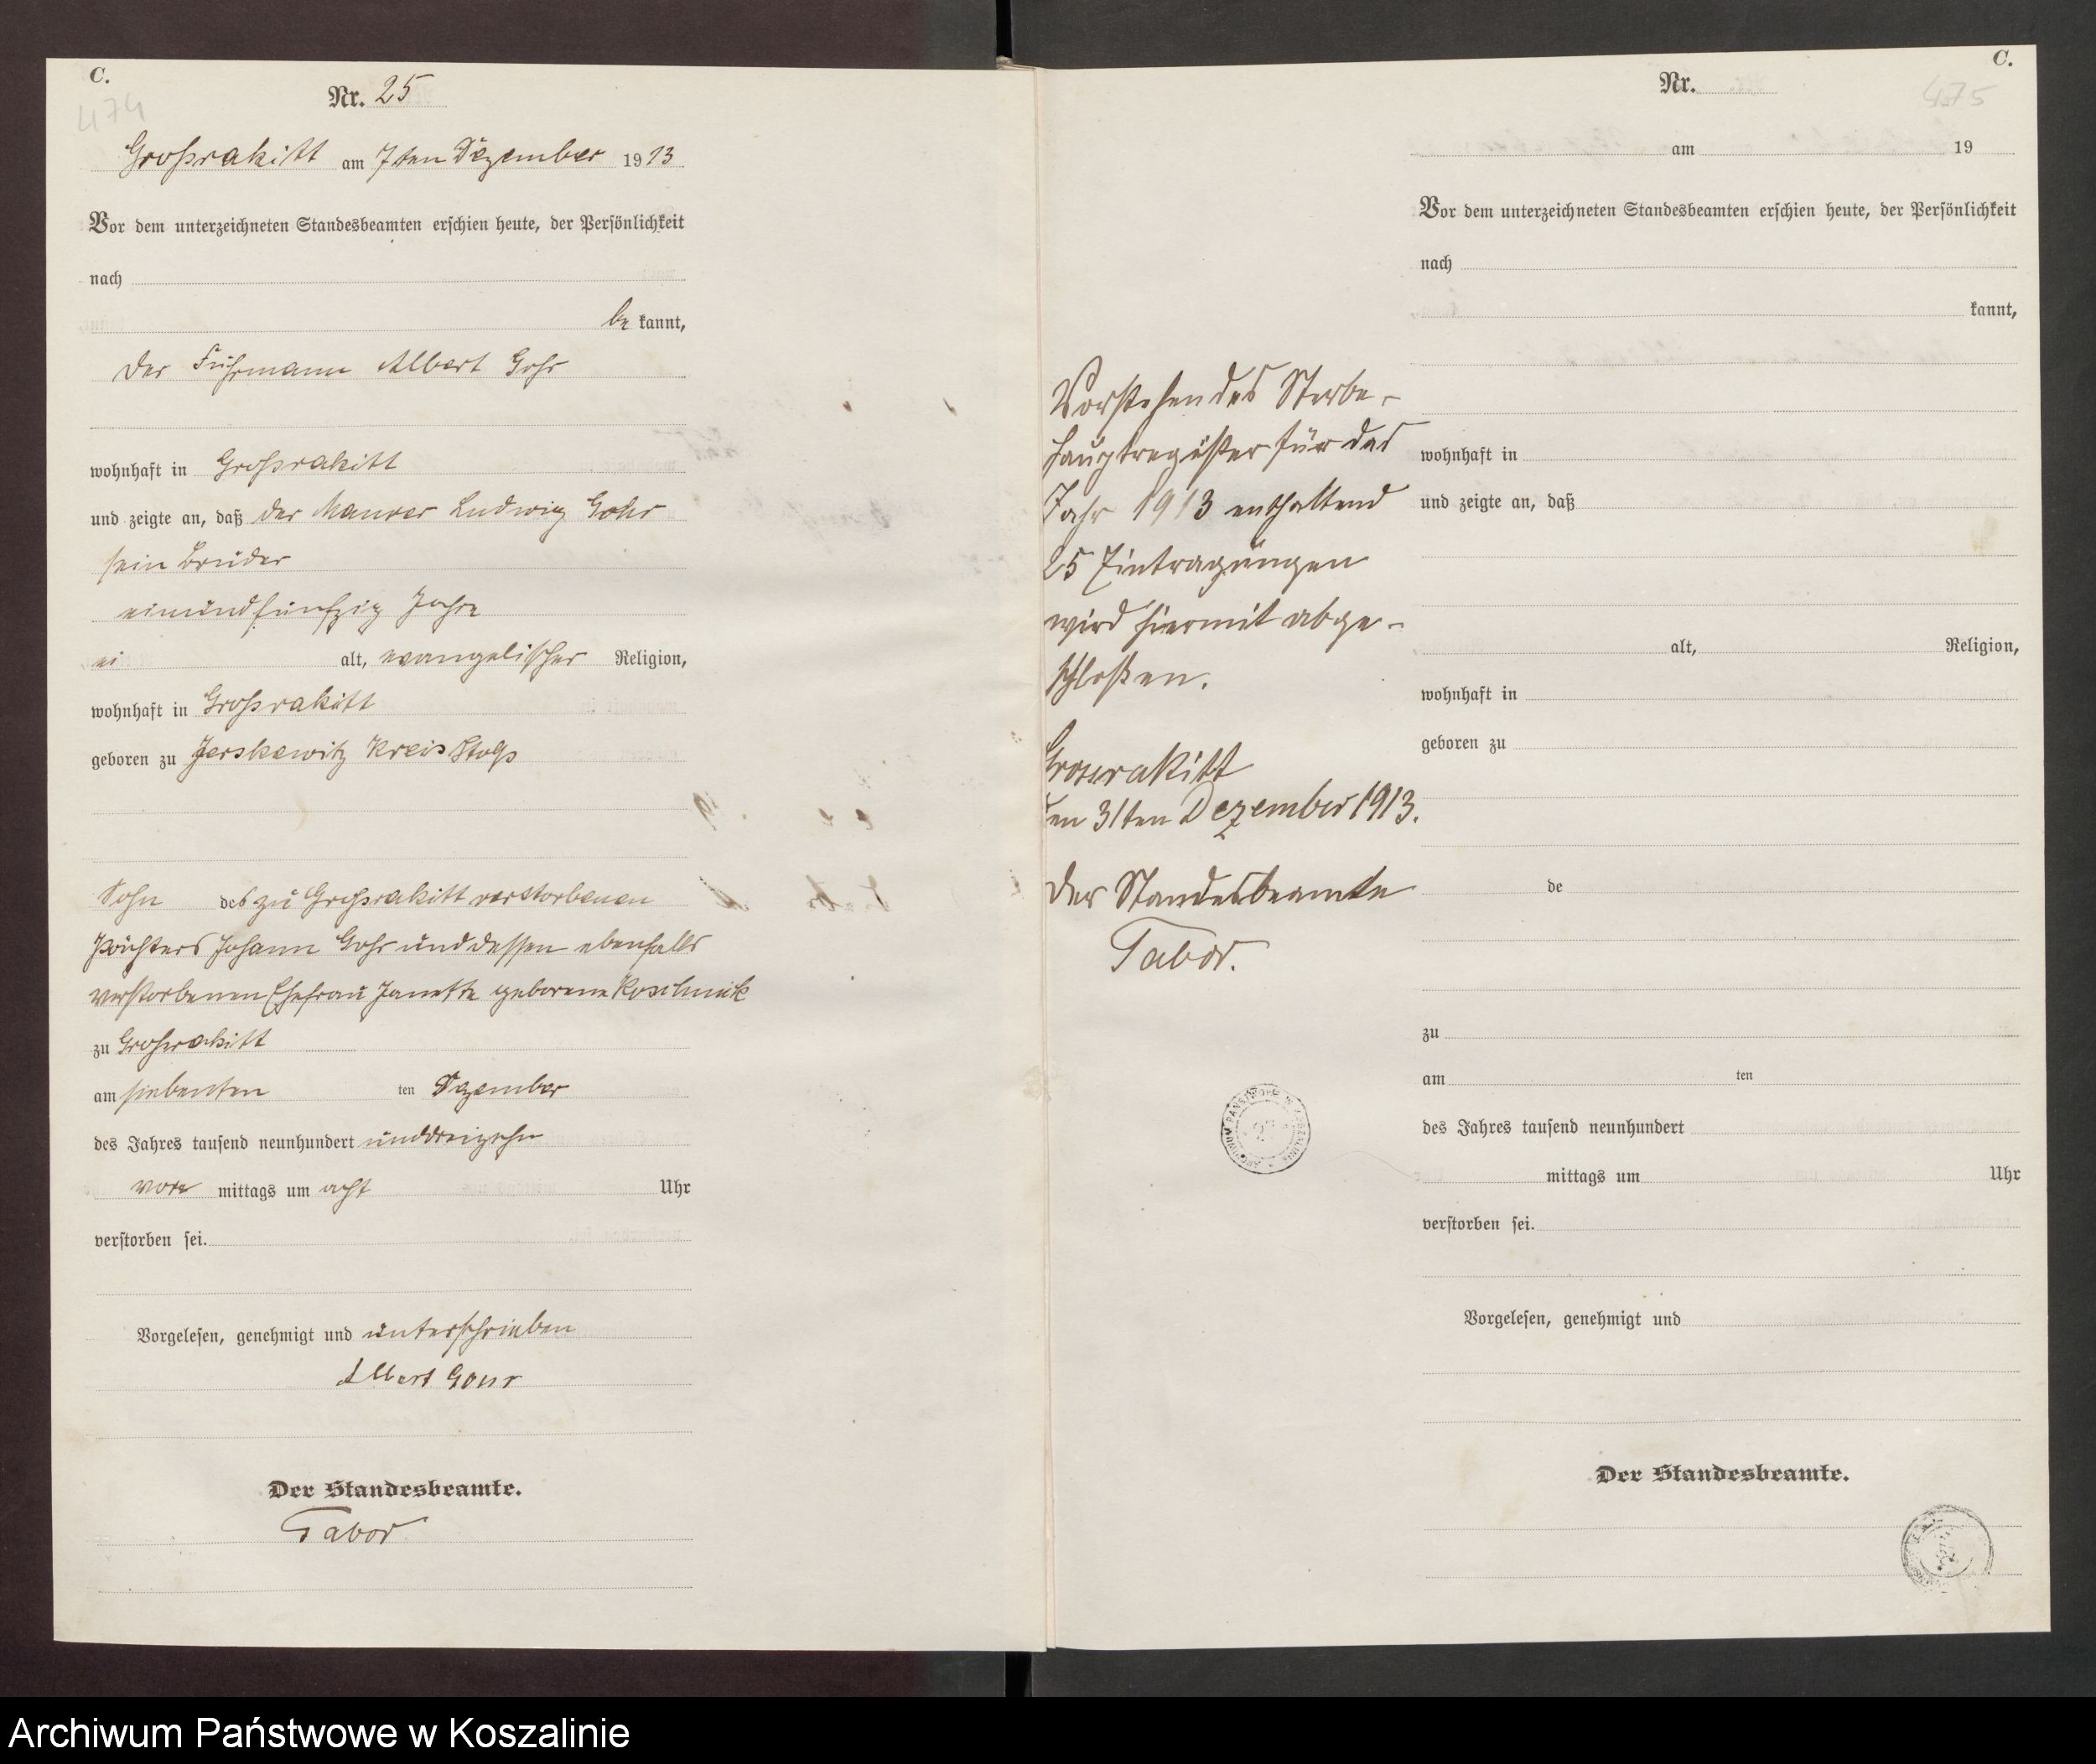 C.
474
Nr. 25
Großrakitt am 7ten Dezember 1913
Vor dem unterzeichneten Standesbeamten erschien heute, der Persönlichkeit
nach
be kannt,
der Fuhrmann Albert Gohr
wohnhaft in Großrakitt
und zeigte an, daß der Maurer Ludwig Gohr
sein Bruder
einundfünfzig Jahre
alt, evangelischer Religion,
wohnhaft in Großrakitt
geboren zu Jerskewitz Kreis Stolp
Sohn des zu Großrakitt verstorbenen
Pächters Johann Gohr und dessen ebenfalls
verstorbenen Ehefrau Janette geborene Koschnick
zu Großrakitt
am siebenten ten Dezember
des Jahres tausend neunhundert unddreizehn
vor mittags um acht Uhr
verstorben sei.
Vorgelesen, genehmigt und unterschrieben
Albert Gohr
Der Standesbeamte.
Tabor
Vorstehendes Sterbe-
hauptregister für das
Jahr 1913 enthaltend
25 Eintragungen
wird hiermit abge-
schloßen.
Grossrakitt
den 31ten Dezember 1913.
Der Standesbeamte
Tabor.
C.
475
Nr.
am 19
Vor dem unterzeichneten Standesbeamten erschien heute, der Persönlichkeit
nach
kannt,
wohnhaft in
und zeigte an, daß
alt, Religion,
wohnhaft in
geboren zu
de
zu
am ten
des Jahres tausend neunhundert
mittags um Uhr
verstorben sei.
Vorgelesen, genehmigt und
Der Standesbeamte.
Archiwum Państwowe w Koszalinie